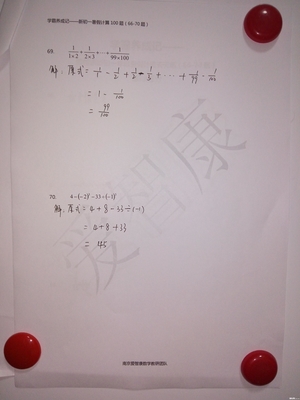 学霸养成记——新初一暑假计算 100 题 (66-70 题)
69. 1/1×2 + 1/2×3 + … + 1/99×100
解: 原式 = 1/1 - 1/2 + 1/2 - 1/3 + … + 1/99 - 1/100
= 1 - 1/100
= 99/100
70. 4-(-2)³-33÷(-1)³
解: 原式 = 4+8-33÷(-1)
= 4+8+33
= 45
爱智康
南京爱智康数学教研团队